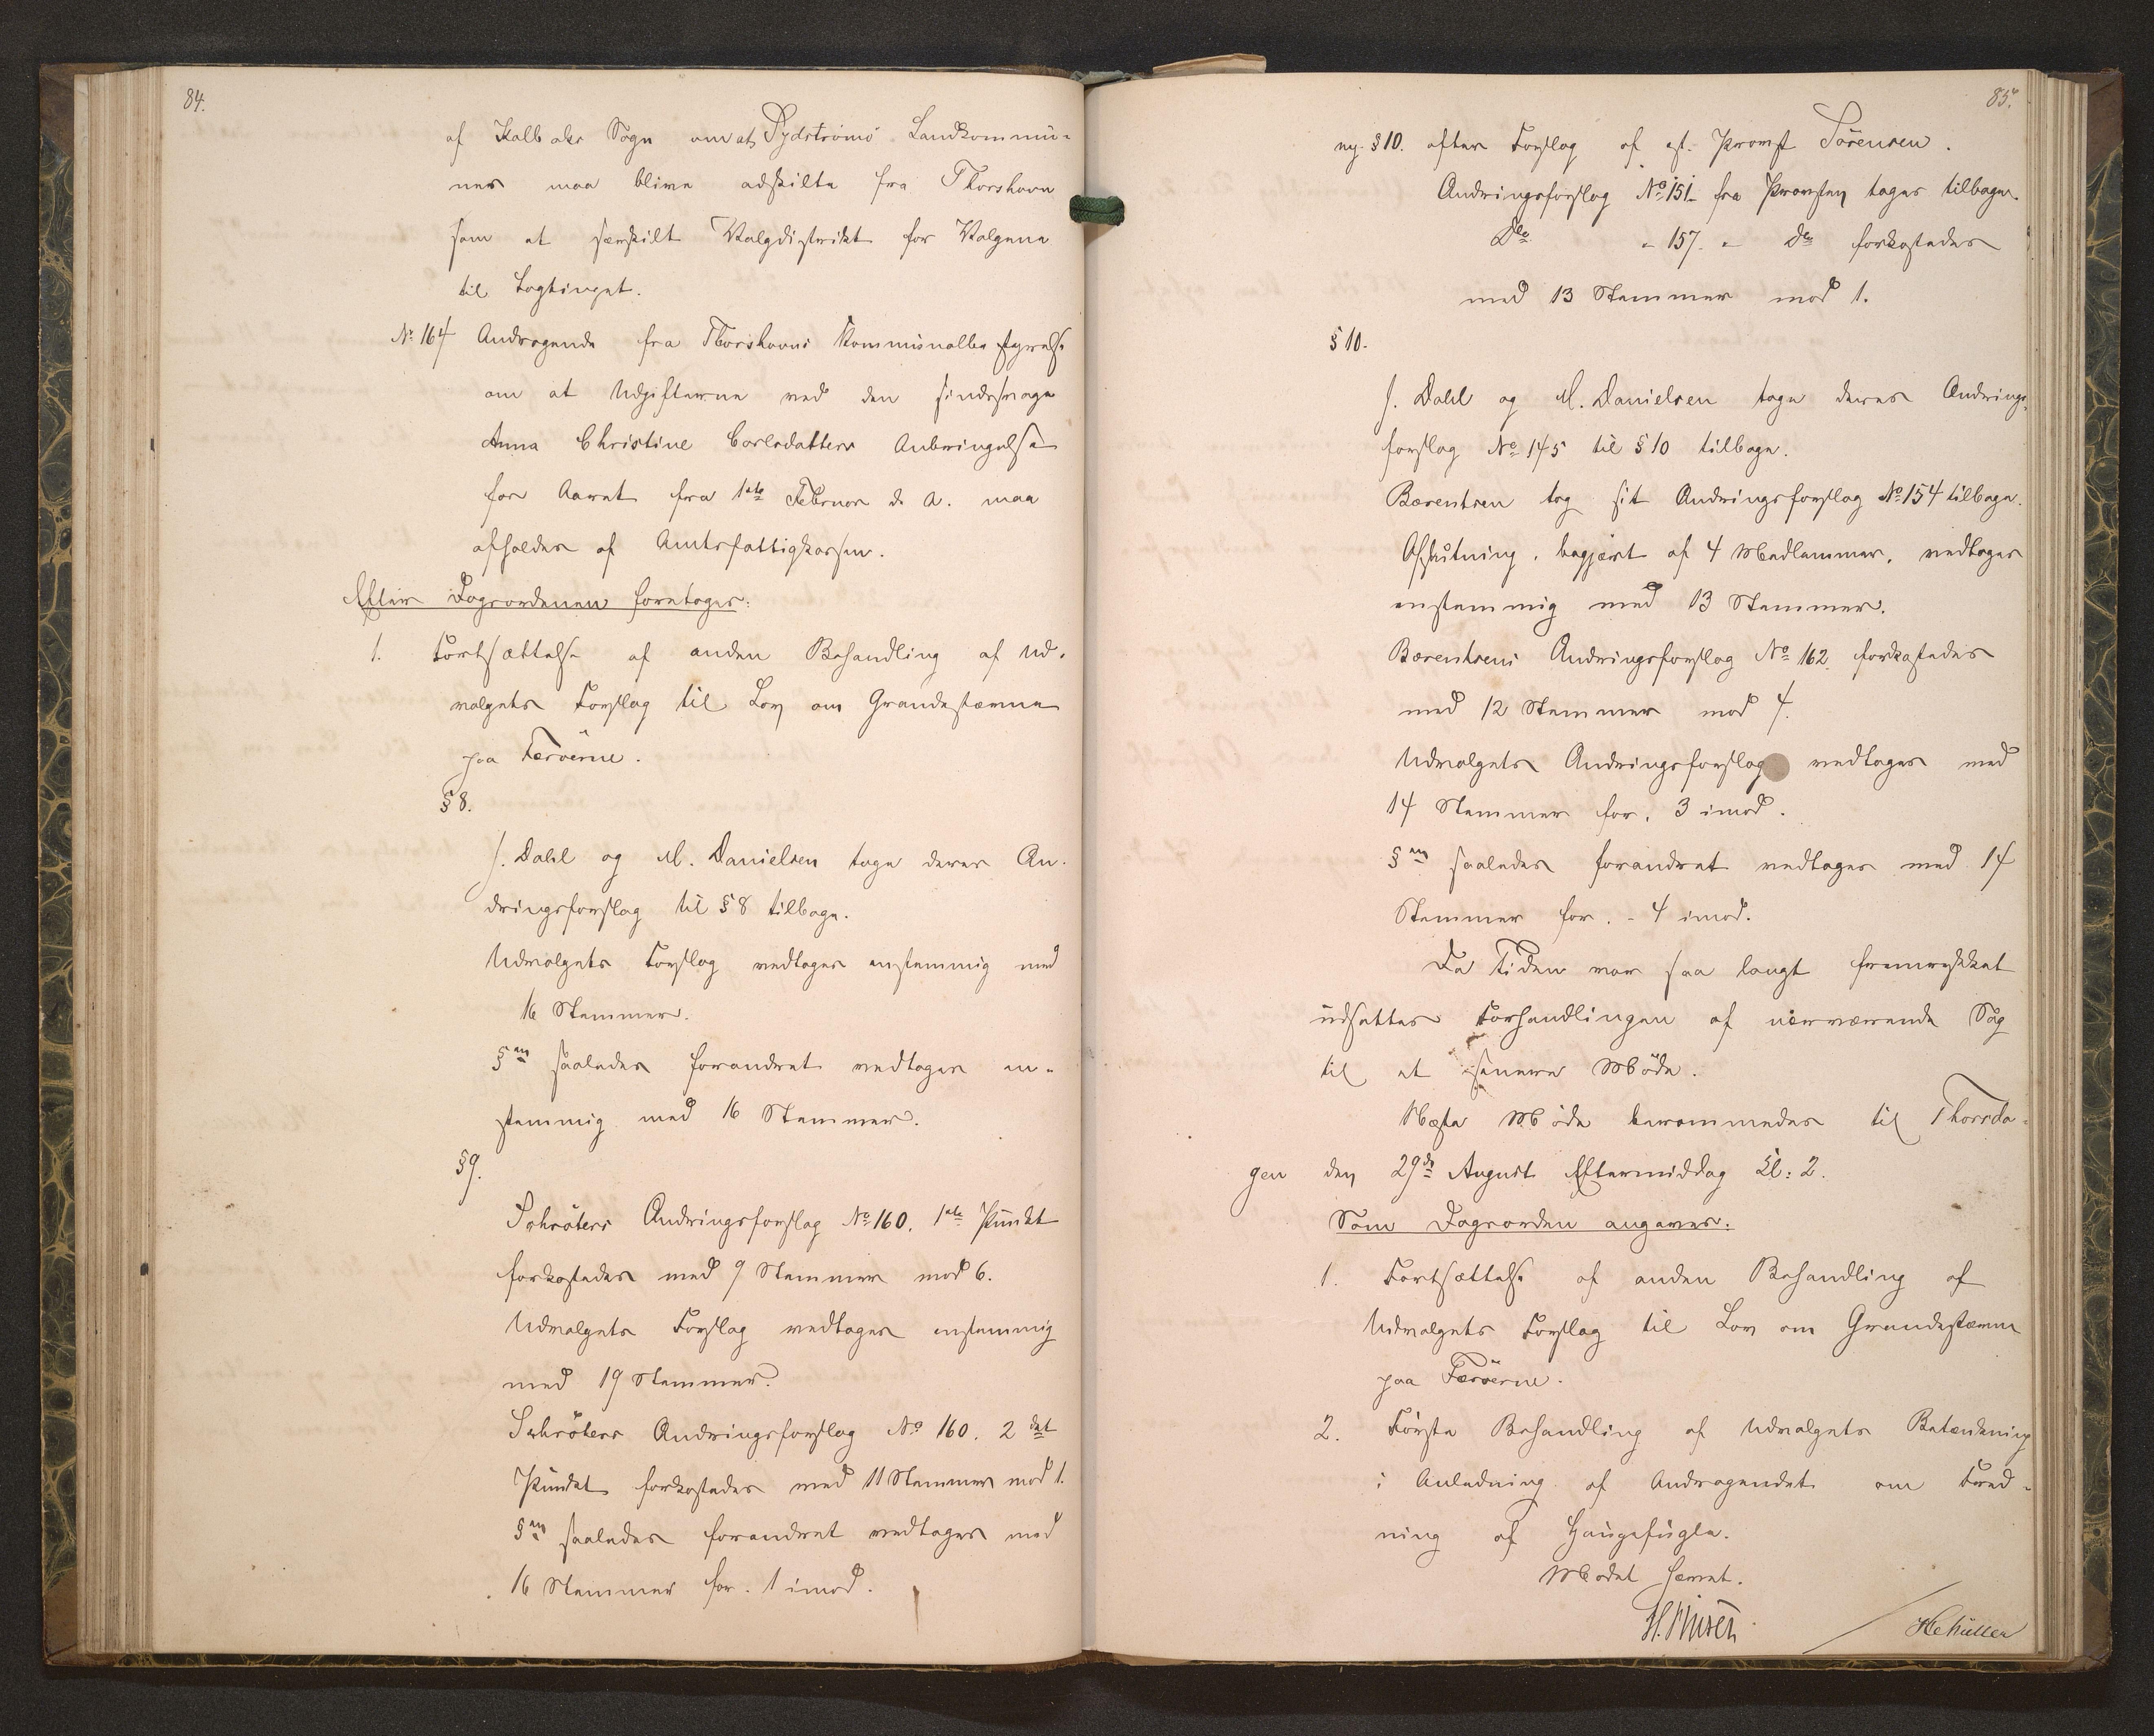 84.
af Kalbaks Sogn om at Sydstrømø Landkommu-
ner maa blive adskilte fra Thorshavn
som et særskilt Valgdistrikt for Valgene
til Lagtinget.
No 164 Andragende fra Thorshavns Kommunalbestyrelse
om at Udgifterne ved den sindssvage
Anna Christine Carlsdatters Anbringelse
for Aaret fra 1ste Februar d. A. maa
afholdes af Amtsfattigkassen.
Efter Dagsordenen foretoges:
1. Fortsættelse af anden Behandling af Ud-
valgets Forslag til Lov om Grandestævne
paa Færöerne.
§ 8.
J. Dahl og M. Danielsen toge deres Æn-
dringsforslag til § 8 tilbage.
Udvalgets Forslag vedtoges enstemmig med
16 Stemmer.
§en saaledes forandret vedtoges en-
stemmig med 16 Stemmer.
§ 9.
Schröters Ændringsforslag No 160. 1ste Punkt
forkastedes med 9 Stemmer mod 6.
Udvalgets Forslag vedtoges enstemmig
med 19 Stemmer.
Schröters Ændringsforslag No 160. 2det
Punkt forkastedes med 11 Stemmer mod 1.
§en saaledes forandret vedtoges med
16 Stemmer for. 1 imod.
85.
ny § 10. efter Forslag af Provst Sörensen.
Ændringsforslag No 151 fra Provsten toges tilbage.
Do - 157. - Do forkastedes
med 13 Stemmer mod 1.
§ 10.
J. Dahl og M. Danielsen toge deres Ændrings-
forslag No 145 til § 10 tilbage.
Bærentsen tog sit Ændringsforslag No 154 tilbage.
Afslutning, begjært af 4 Medlemmer, vedtoges
enstemmig med 13 Stemmer.
Bærentsens Ændringsforslag No 162. forkastedes
med 12 Stemmer mod 4.
Udvalgets Ændringsforslag vedtoges med
14 Stemmer for, 3 imod.
§en saaledes forandret vedtoges med 14
Stemmer for. - 4 imod.
Da Tiden var saa langt fremrykket
udsattes Forhandlingen af nærværende Sag
til et senere Möde.
Næste Möde berammedes til Thorsda-
gen den 29de August Eftermiddag Kl: 2.
Som Dagsorden angaves:
1. Fortsættelse af anden Behandling af
Udvalgets Forslag til Lov om Grandestævne
paa Færöerne.
2. Förste Behandling af Udvalgets Betænkning
i Anledning af Andragendet om Fred-
ning af Haugefugle.
Mödet hævet.